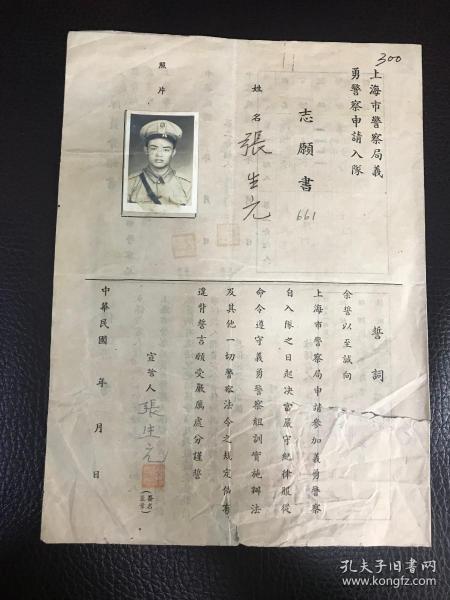 300
上海市警察局義
勇警察申請入隊
志願書
661
姓名 張生元
照片
誓詞
余誓以至誠向
上海市警察局申請參加義勇警察
自入隊之日起決當嚴守紀律服從
命令遵守義勇警察組訓實施辦法
及其他一切警察法令之規定倘有
違背誓言願受嚴厲處分謹誓
宣誓人 張生元
(簽名蓋章)
中華民國 年 月 日
孔夫子旧书网
www.kongfz.com